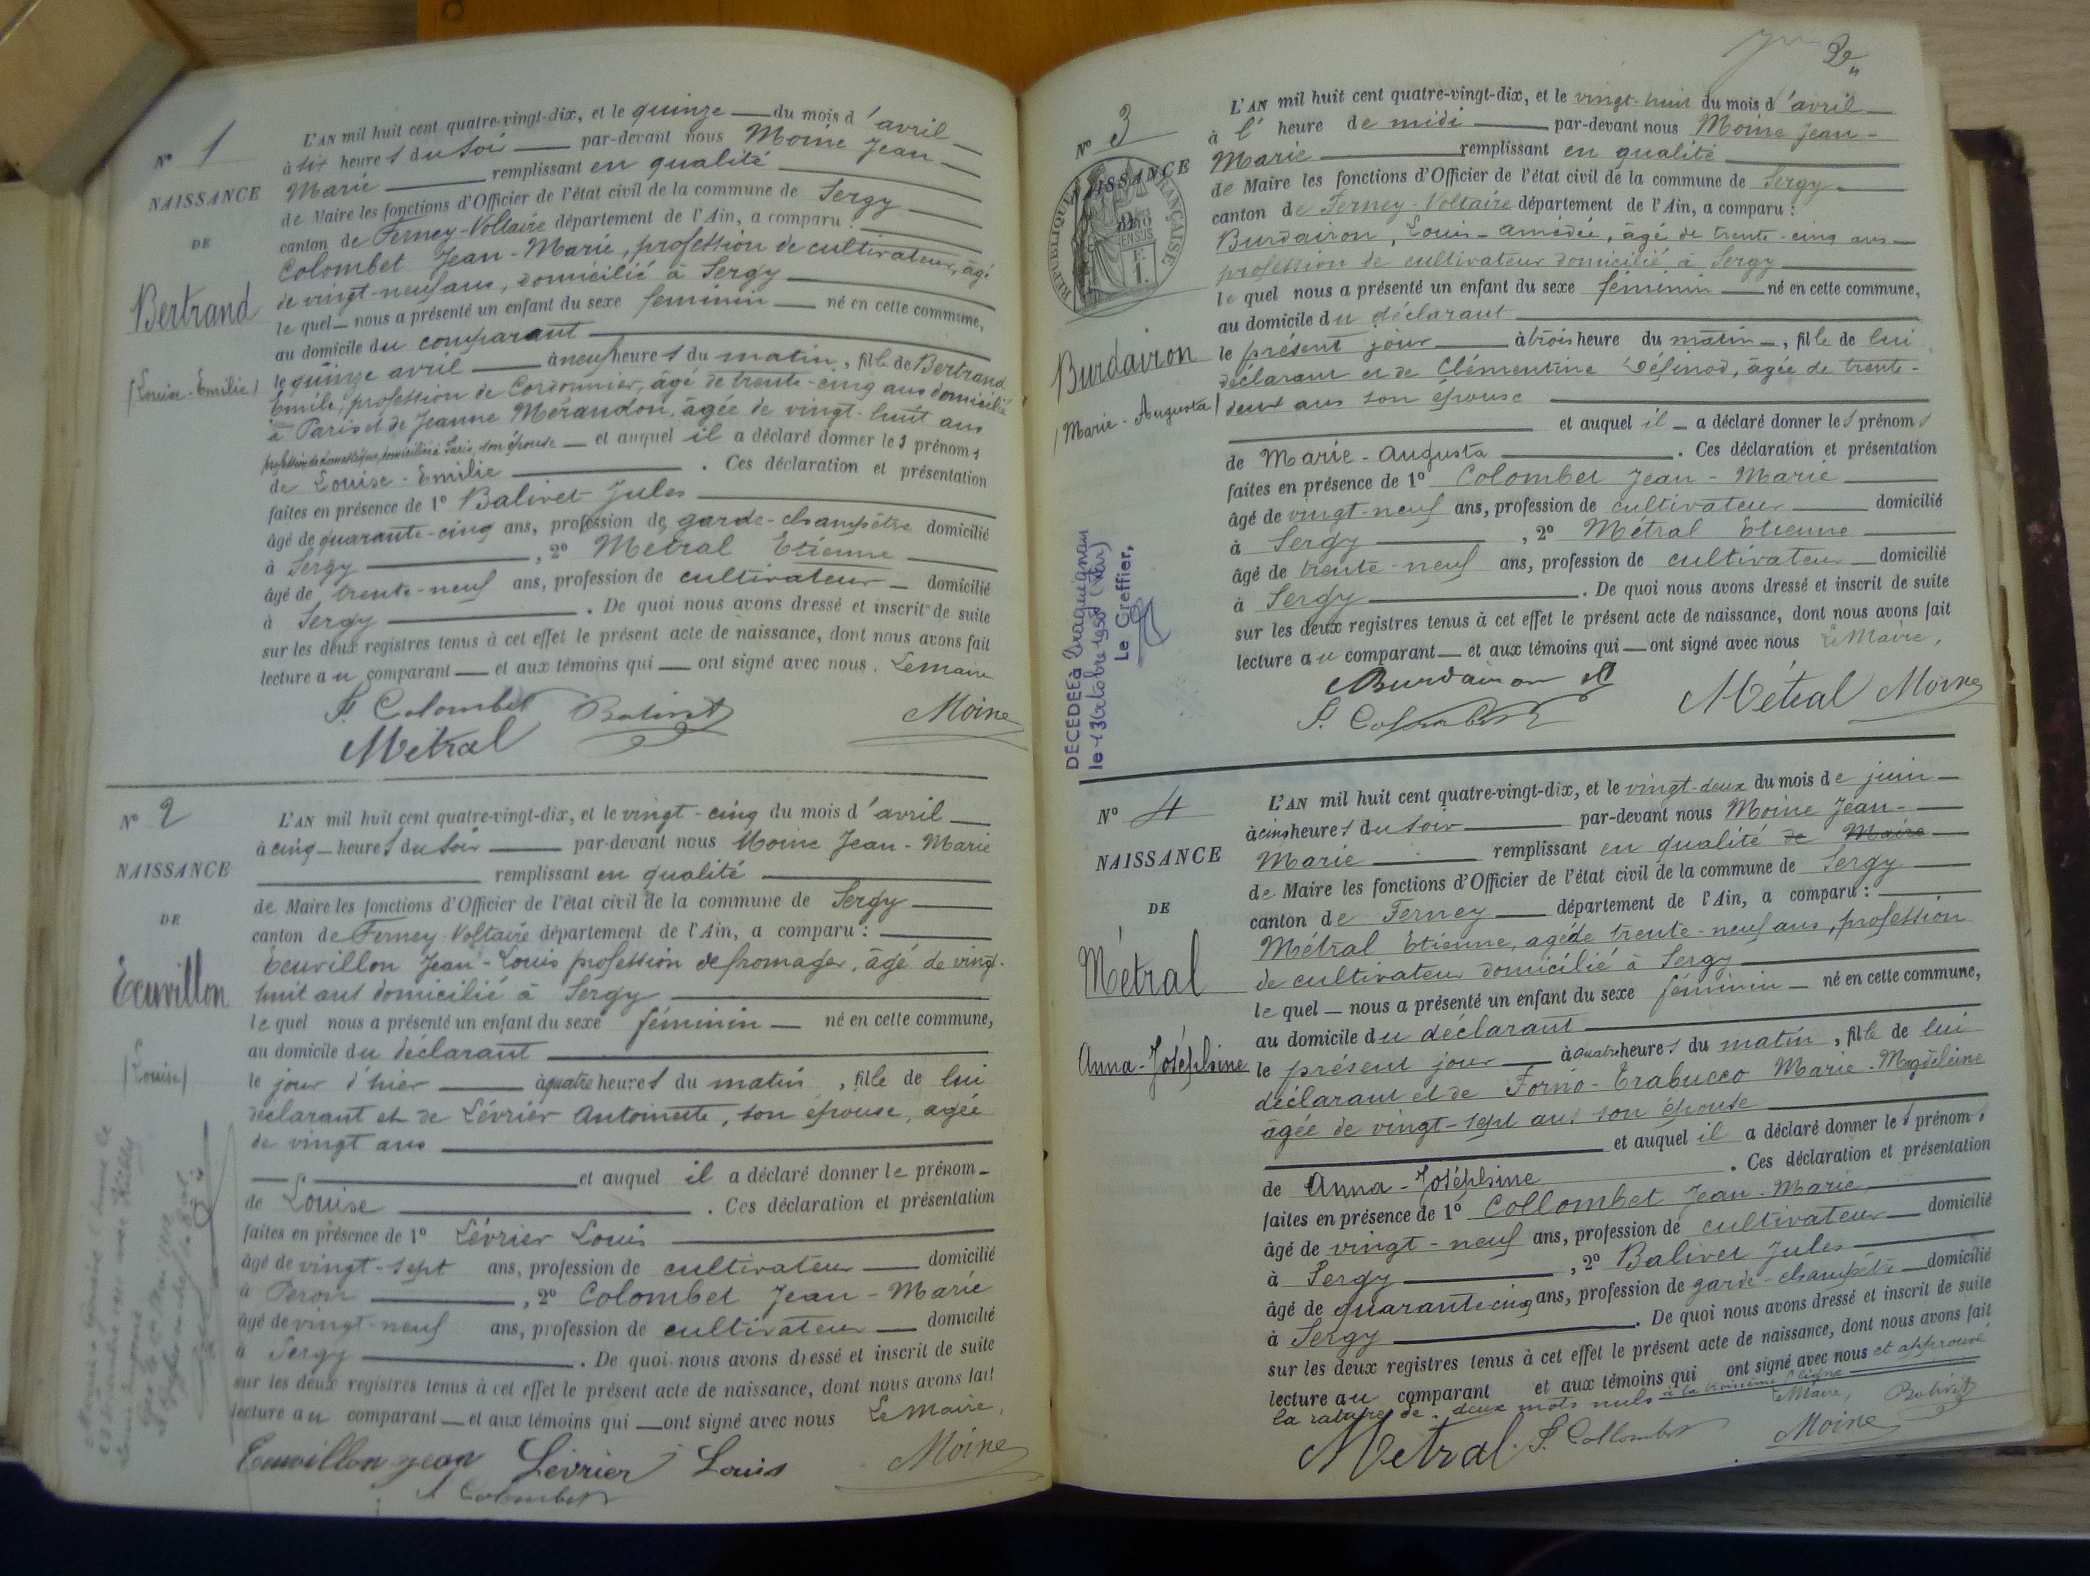 N° 1
NAISSANCE
DE
Bertrand
(Louise-Emilie)
L'AN mil huit cent quatre-vingt-dix, et le quinze du mois d'avril
à six heures du soir par-devant nous Moine Jean-
Marie remplissant en qualité
de Maire les fonctions d'Officier de l'état civil de la commune de Sergy
canton de Ferney-Voltaire département de l'Ain, a comparu :
Colombet Jean-Marie, profession de cultivateur, âgé
de vingt-neuf ans, domicilié à Sergy
le quel nous a présenté un enfant du sexe féminin né en cette commune,
au domicile du comparant
le quinze avril à neuf heures du matin, fille de Bertrand
Emile, profession de Cordonnier, âgé de trente-cinq ans domicilié
à Paris et de Jeanne Mérandon, âgée de vingt-huit ans
profession de domestique, domiciliée à Paris, son épouse et auquel il a déclaré donner les prénoms
de Louise-Emilie . Ces déclaration et présentation
faites en présence de 1° Balivet Jules
âgé de quarante-cinq ans, profession de garde-champêtre domicilié
à Sergy , 2° Métral Etienne
âgé de trente-neuf ans, profession de cultivateur domicilié
à Sergy . De quoi nous avons dressé et inscrit de suite
sur les deux registres tenus à cet effet le présent acte de naissance, dont nous avons fait
lecture au comparant et aux témoins qui ont signé avec nous. Le maire
Colombet Balivet Moine
Métral
N° 2
NAISSANCE
DE
Ecuvillon
(Louise)
L'AN mil huit cent quatre-vingt-dix, et le vingt-cinq du mois d'avril
à cinq heures du soir par-devant nous Moine Jean-Marie
remplissant en qualité
de Maire les fonctions d'Officier de l'état civil de la commune de Sergy
canton de Ferney Voltaire département de l'Ain, a comparu :
Ecuvillon Jean-Louis profession de fromager, âgé de vingt-
huit ans domicilié à Sergy
le quel nous a présenté un enfant du sexe féminin né en cette commune,
au domicile du déclarant
le jour d'hier à quatre heures du matin, fille de lui
déclarant et de Lévrier Antoinette, son épouse, agée
de vingt ans
et auquel il a déclaré donner le prénom
de Louise . Ces déclaration et présentation
faites en présence de 1° Lévrier Louis
âgé de vingt-sept ans, profession de cultivateur domicilié
à Peron , 2° Colombet Jean-Marie
âgé de vingt-neuf ans, profession de cultivateur domicilié
à Sergy . De quoi nous avons dressé et inscrit de suite
sur les deux registres tenus à cet effet le présent acte de naissance, dont nous avons fait
lecture au comparant et aux témoins qui ont signé avec nous Le Maire,
Ecuvillon jean Lévrier Louis Moine
Colombet
2
N° 3
NAISSANCE
RÉPUBLIQUE FRANÇAISE
Burdairon
(Marie-Augusta)
DÉCÉDÉE à Draguignan
le 13 Octobre 1958 (Var)
Le Greffier,
L'AN mil huit cent quatre-vingt-dix, et le vingt-huit du mois d'avril
à l'heure de midi par-devant nous Moine Jean-
Marie remplissant en qualité
de Maire les fonctions d'Officier de l'état civil de la commune de Sergy
canton de Ferney-Voltaire département de l'Ain, a comparu :
Burdairon, Louis-Amédée, âgé de trente-cinq ans
profession de cultivateur domicilié à Sergy
le quel nous a présenté un enfant du sexe féminin né en cette commune,
au domicile du déclarant
le présent jour à trois heure du matin, fille de lui
déclarant et de Clémentine Définod, âgée de trente-
deux ans son épouse
et auquel il a déclaré donner les prénoms
de Marie-Augusta . Ces déclaration et présentation
faites en présence de 1° Colombet Jean-Marie
âgé de vingt-neuf ans, profession de cultivateur domicilié
à Sergy , 2° Métral Etienne
âgé de trente-neuf ans, profession de cultivateur domicilié
à Sergy . De quoi nous avons dressé et inscrit de suite
sur les deux registres tenus à cet effet le présent acte de naissance, dont nous avons fait
lecture au comparant et aux témoins qui ont signé avec nous Le Maire,
Burdairon
Colombet Métral Moine
N° 4
NAISSANCE
DE
Métral
Anna-Joséphine
L'AN mil huit cent quatre-vingt-dix, et le vingt-deux du mois de juin
à cinq heures du soir par-devant nous Moine Jean-
Marie remplissant en qualité de Maire
de Maire les fonctions d'Officier de l'état civil de la commune de Sergy
canton de Ferney département de l'Ain, a comparu :
Métral Etienne, agé de trente-neuf ans, profession
de cultivateur domicilié à Sergy
le quel nous a présenté un enfant du sexe féminin né en cette commune,
au domicile du déclarant
le présent jour à quatre heures du matin, fille de lui
déclarant et de Forno-Trabucco Marie-Magdeleine
agée de vingt-sept ans son épouse
et auquel il a déclaré donner les prénoms
de Anna-Joséphine . Ces déclaration et présentation
faites en présence de 1° Collombet Jean-Marie
âgé de vingt-neuf ans, profession de cultivateur domicilié
à Sergy , 2° Balivet Jules
âgé de quarante cinq ans, profession de garde-champêtre domicilié
à Sergy . De quoi nous avons dressé et inscrit de suite
sur les deux registres tenus à cet effet le présent acte de naissance, dont nous avons fait
lecture au comparant et aux témoins qui ont signé avec nous et approuvé
la rature de deux mots nuls à la troisième ligne
Le Maire, Balivet
Métral Collombet Moine